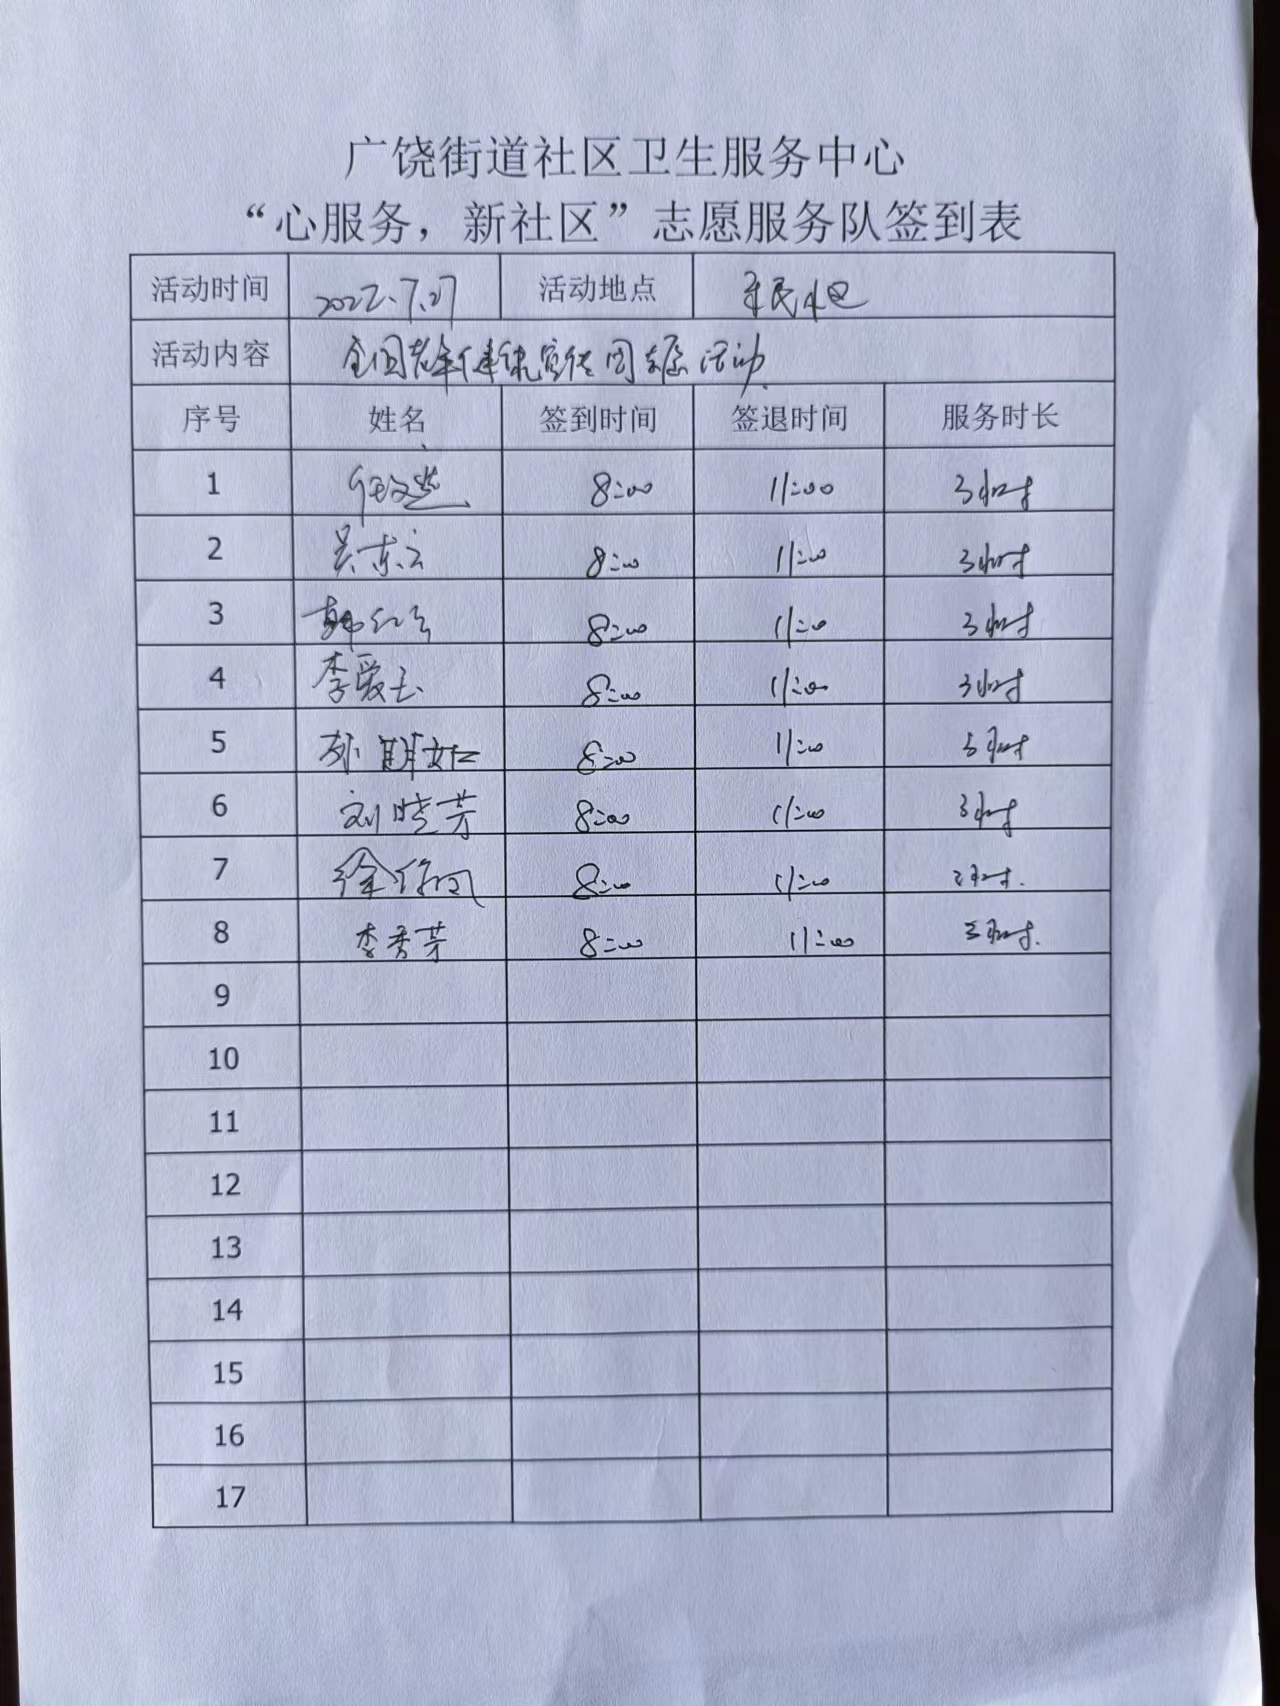 广饶街道社区卫生服务中心
“心服务，新社区”志愿服务队签到表
活动时间 2022.7.27 活动地点
活动内容 全国老年健康宣传周志愿活动
序号 姓名 签到时间 签退时间 服务时长
1 8:00 11:00 3小时
2 吴东云 8:00 11:00 3小时
3 韩红云 8:00 11:00 3小时
4 李爱玉 8:00 11:00 3小时
5 8:00 11:00 3小时
6 刘晓芳 8:00 11:00 3小时
7 8:00 11:00 3小时.
8 李秀芳 8:00 11:00 3小时.
9
10
11
12
13
14
15
16
17